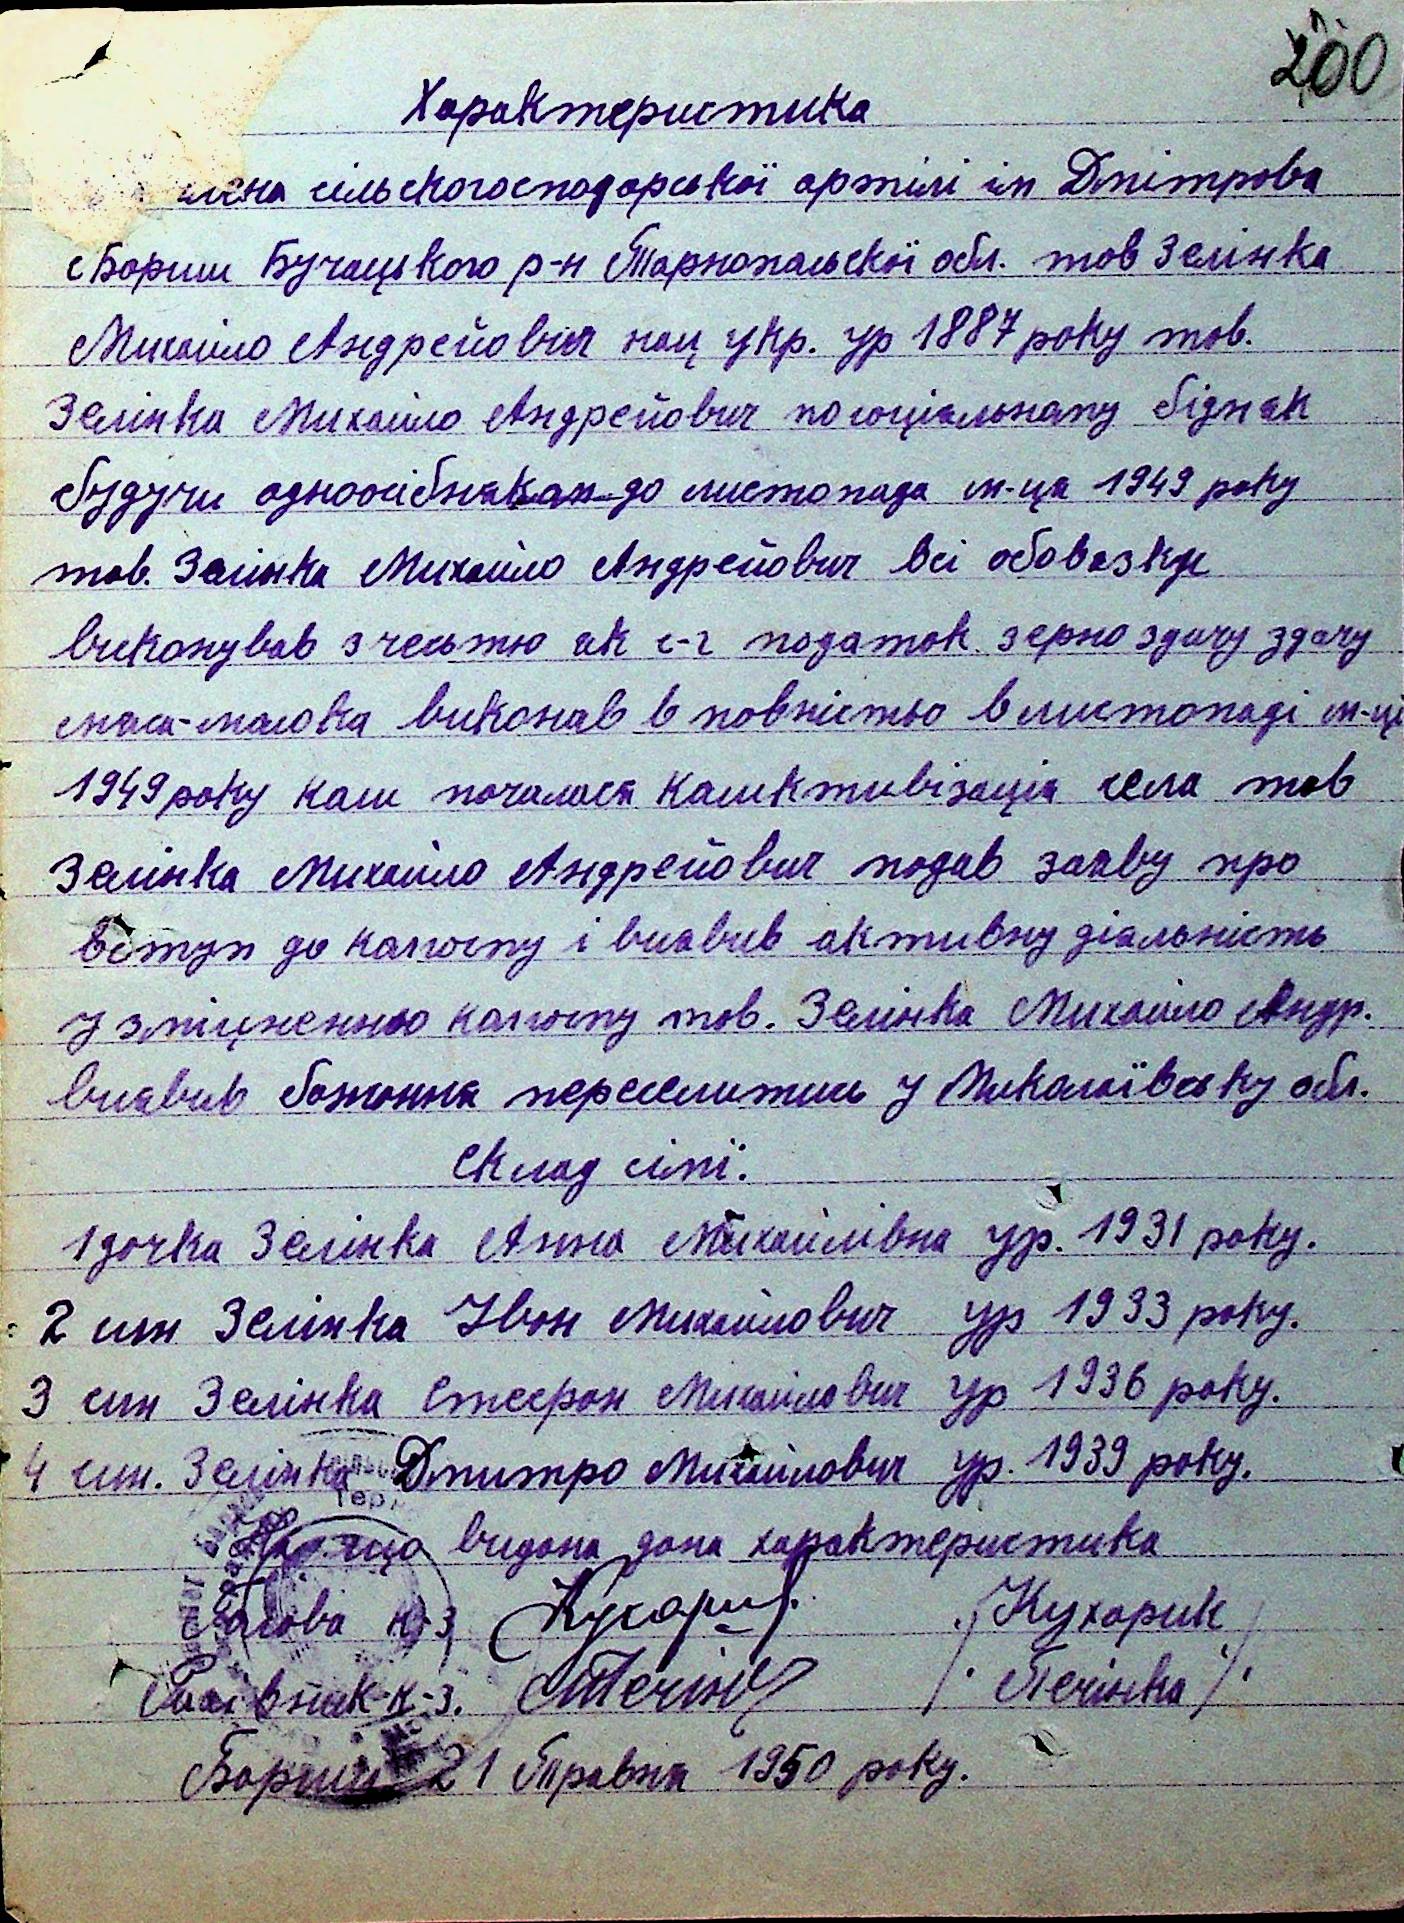 200
Характеристика
члена сільскогосподарської артілі ім Дмітрова
с Бориш Бучацького р-н Тарнопальскої обл. тов Зелінка
Михайло Андрейович нац укр. ур 1887 року тов.
Зелінка Михайло Андрейович по соціальному бідняк
будучи одноосібником до листопада м-ца 1949 року
тов. Зелінка Михайло Андрейович всі обовязки
виконував з честю як с-г податок. зерно здачу здачу
мяса-молока виконав в повністю в листопаді м-ці
1949 року коли почалася колективізація села тов
Зелінка Михайло Андрейович подав заяву про
вступ до колгоспу і виявив активну діяльність
у зміцненню колгоспу тов. Зелінка Михайло Андр.
виявив бажання переселитись у Миколаївську обл.
Склад сімї.
1 дочка Зелінка Анна Михайлівна ур. 1931 року.
2 син Зелінка Іван Михайлович ур 1933 року.
3 син Зелінка Стефан Михайлович ур 1936 року.
4 син. Зелінка Дмитро Михайлович ур. 1939 року.
На що видана дана характеристика
Голова к-з Кухарик /Кухарик/
Рахівник к-з. Печінка /Печінка/.
Бориш 21 Травня 1950 року.